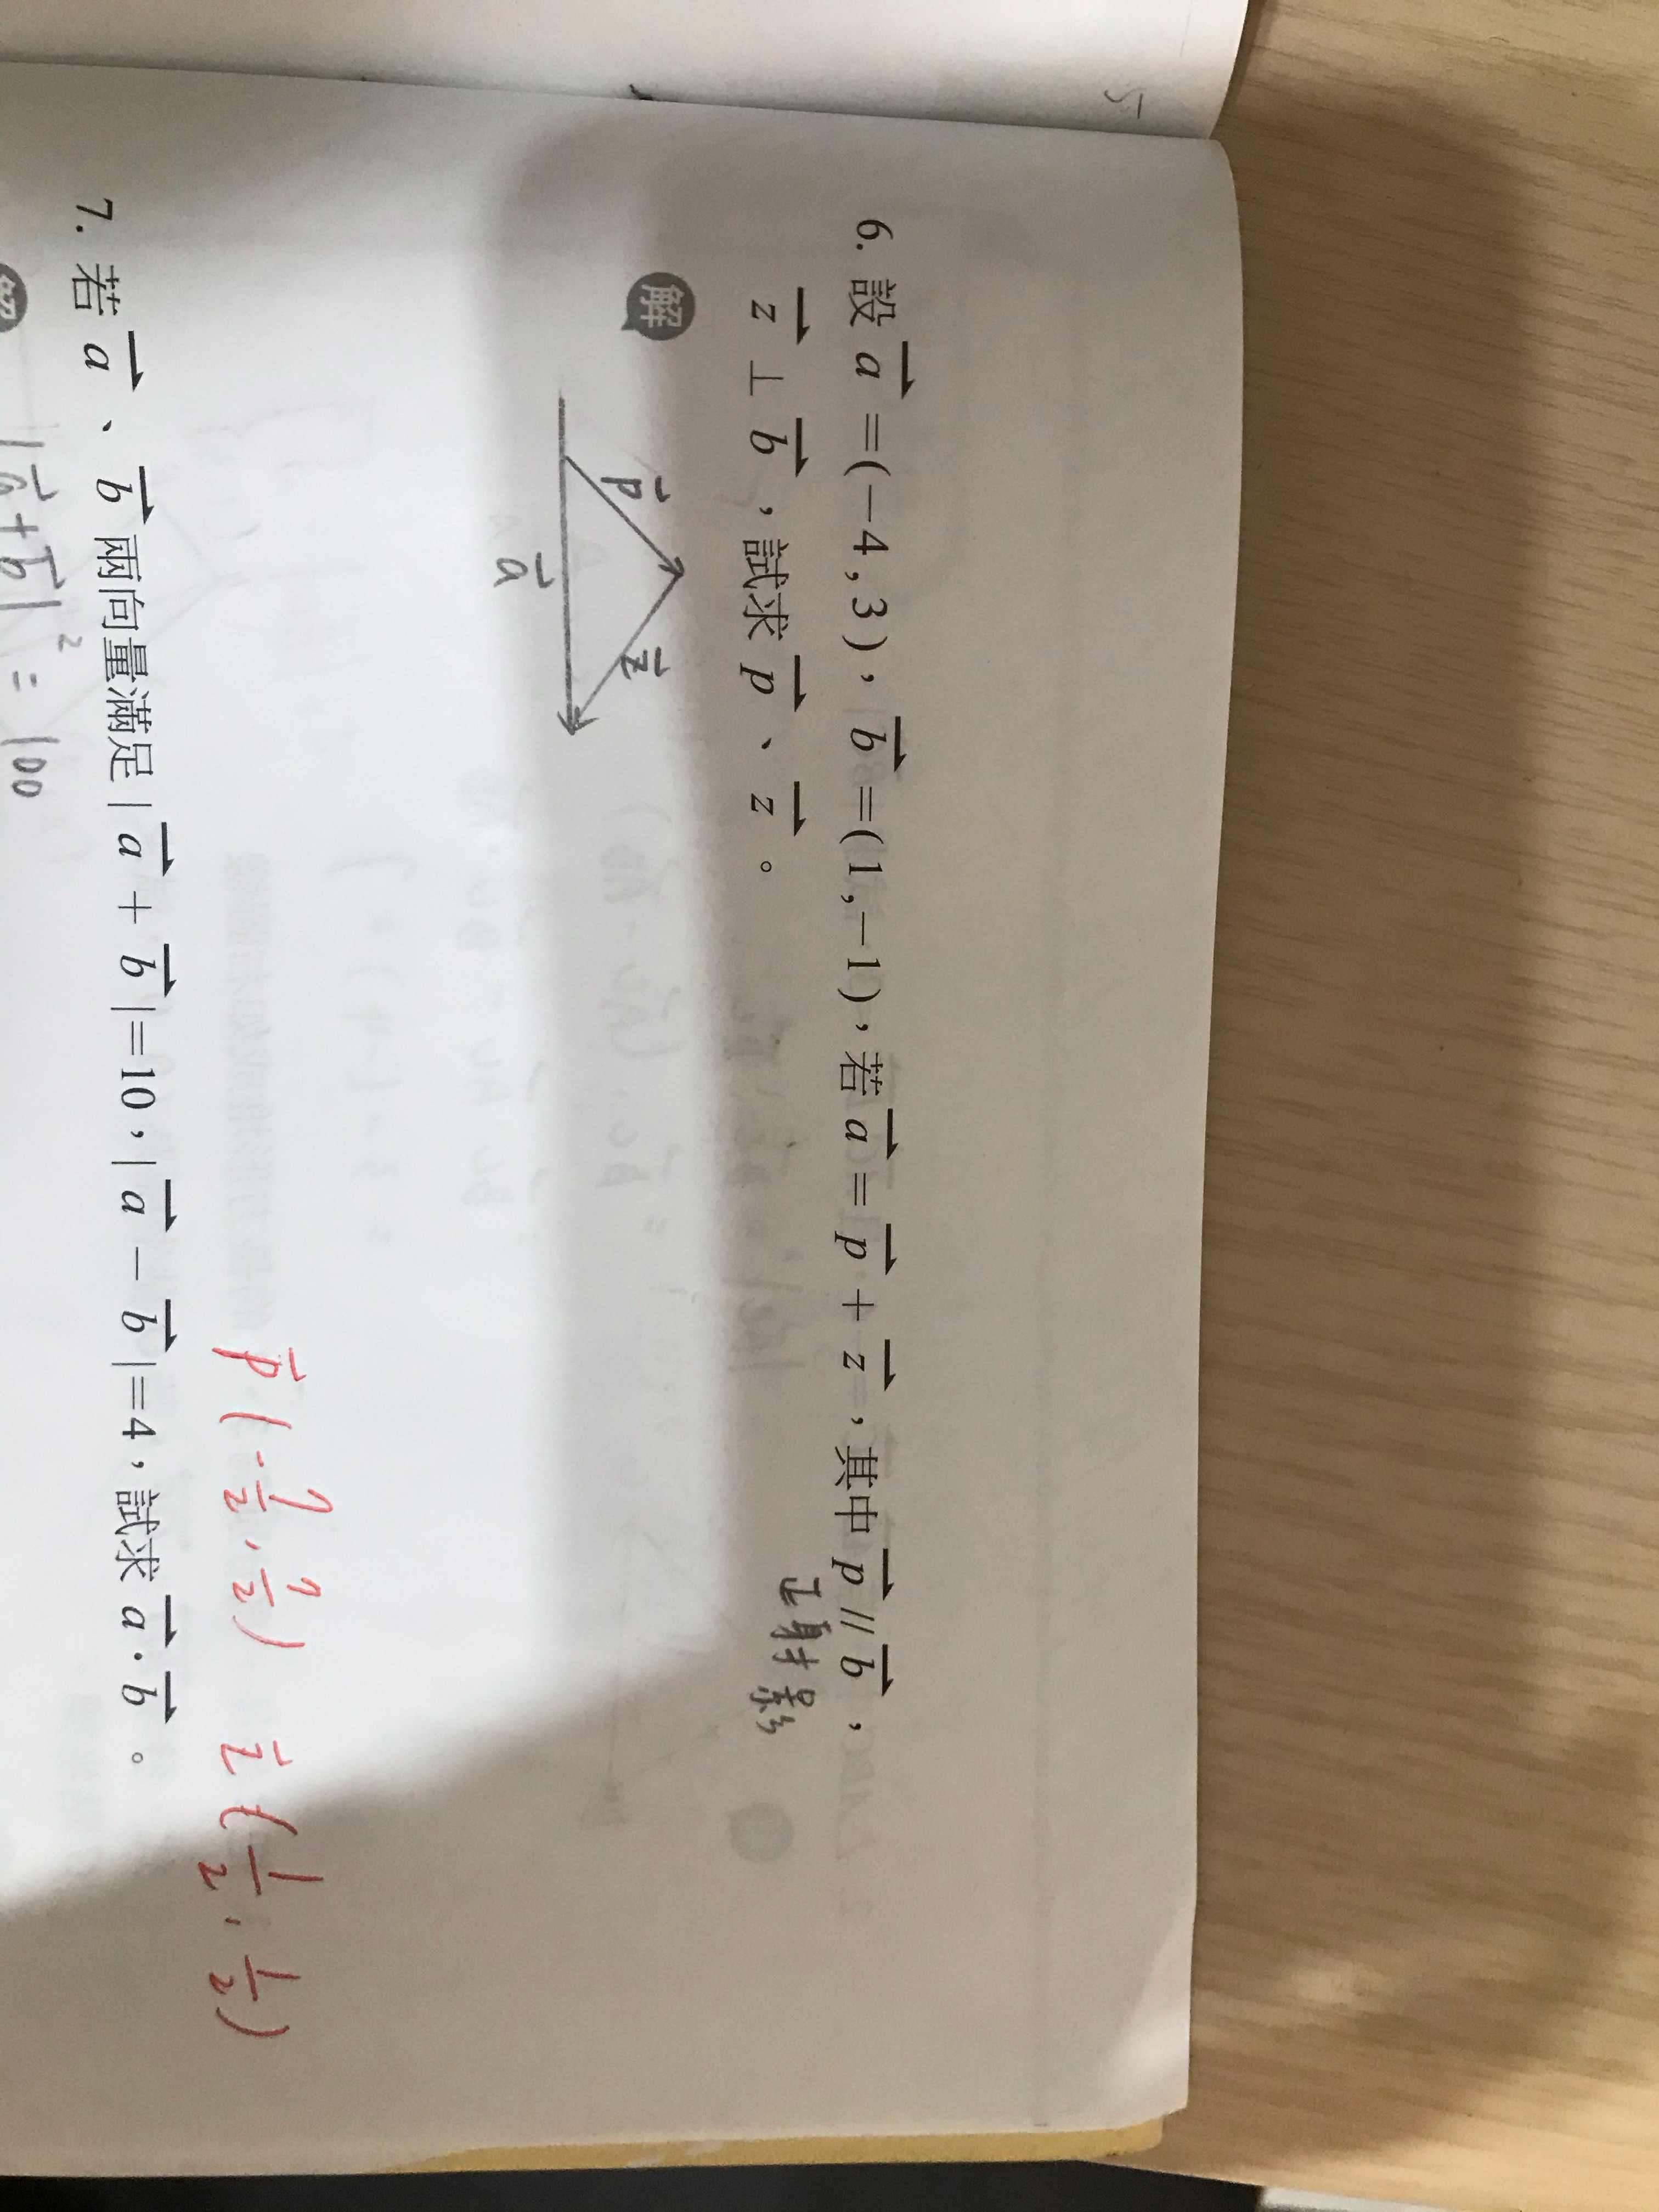 5
6. 設 a⃗ =(−4 , 3), b⃗ =(1 , −1), 若 a⃗ = p⃗ + z⃗ , 其中 p⃗ // b⃗ ,
正射影
z⃗ ⊥ b⃗ , 試求 p⃗ 、 z⃗ 。
解
p⃗ z⃗
a⃗
p⃗ (-7/2 , 7/2) z⃗ (-1/2 , -1/2)
7. 若 a⃗ 、 b⃗ 兩向量滿足 | a⃗ + b⃗ |=10 , | a⃗ − b⃗ |=4 , 試求 a⃗ · b⃗ 。
解
|a⃗ + b⃗|² = 100